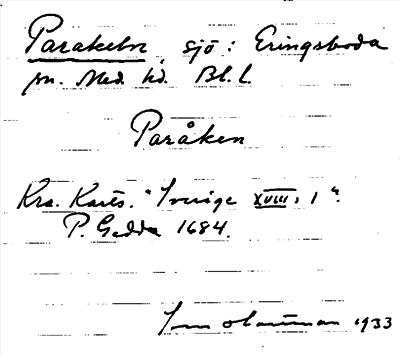 Parakeln, sjö: Eringsboda
sn. Med. hd. Bl. l.
Paråken
Kra. Karts. "Sverige XVIII, 1".
P. Gedda 1684.
1933